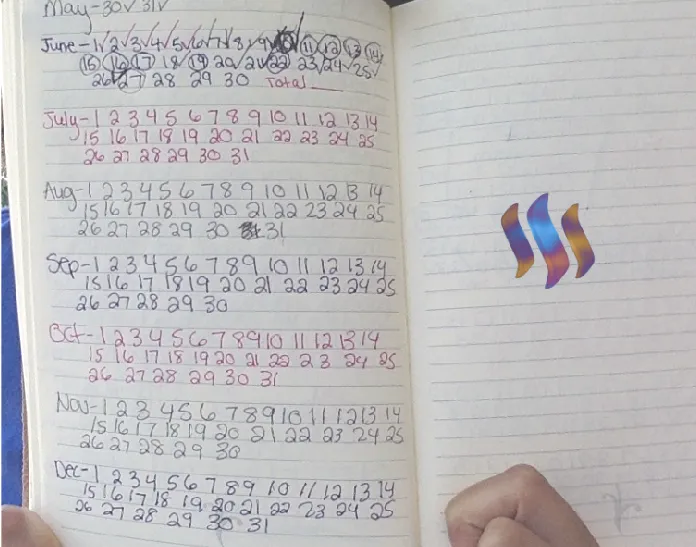 May-30✓ 31✓
June-1✓ 2✓ 3✓ 4✓ 5✓ 6✓ 7✓ 8✓ 9✓ 10 11 12 13 14
15 16 17 18✓ 19 20✓ 21✓ 22 23✓ 24✓ 25✓
26 27 28 29 30 Total ___
July-1 2 3 4 5 6 7 8 9 10 11 12 13 14
15 16 17 18 19 20 21 22 23 24 25
26 27 28 29 30 31
Aug-1 2 3 4 5 6 7 8 9 10 11 12 13 14
15 16 17 18 19 20 21 22 23 24 25
26 27 28 29 30 31
Sep-1 2 3 4 5 6 7 8 9 10 11 12 13 14
15 16 17 18 19 20 21 22 23 24 25
26 27 28 29 30
Oct-1 2 3 4 5 6 7 8 9 10 11 12 13 14
15 16 17 18 19 20 21 22 23 24 25
26 27 28 29 30 31
Nov-1 2 3 4 5 6 7 8 9 10 11 12 13 14
15 16 17 18 19 20 21 22 23 24 25
26 27 28 29 30
Dec-1 2 3 4 5 6 7 8 9 10 11 12 13 14
15 16 17 18 19 20 21 22 23 24 25
26 27 28 29 30 31